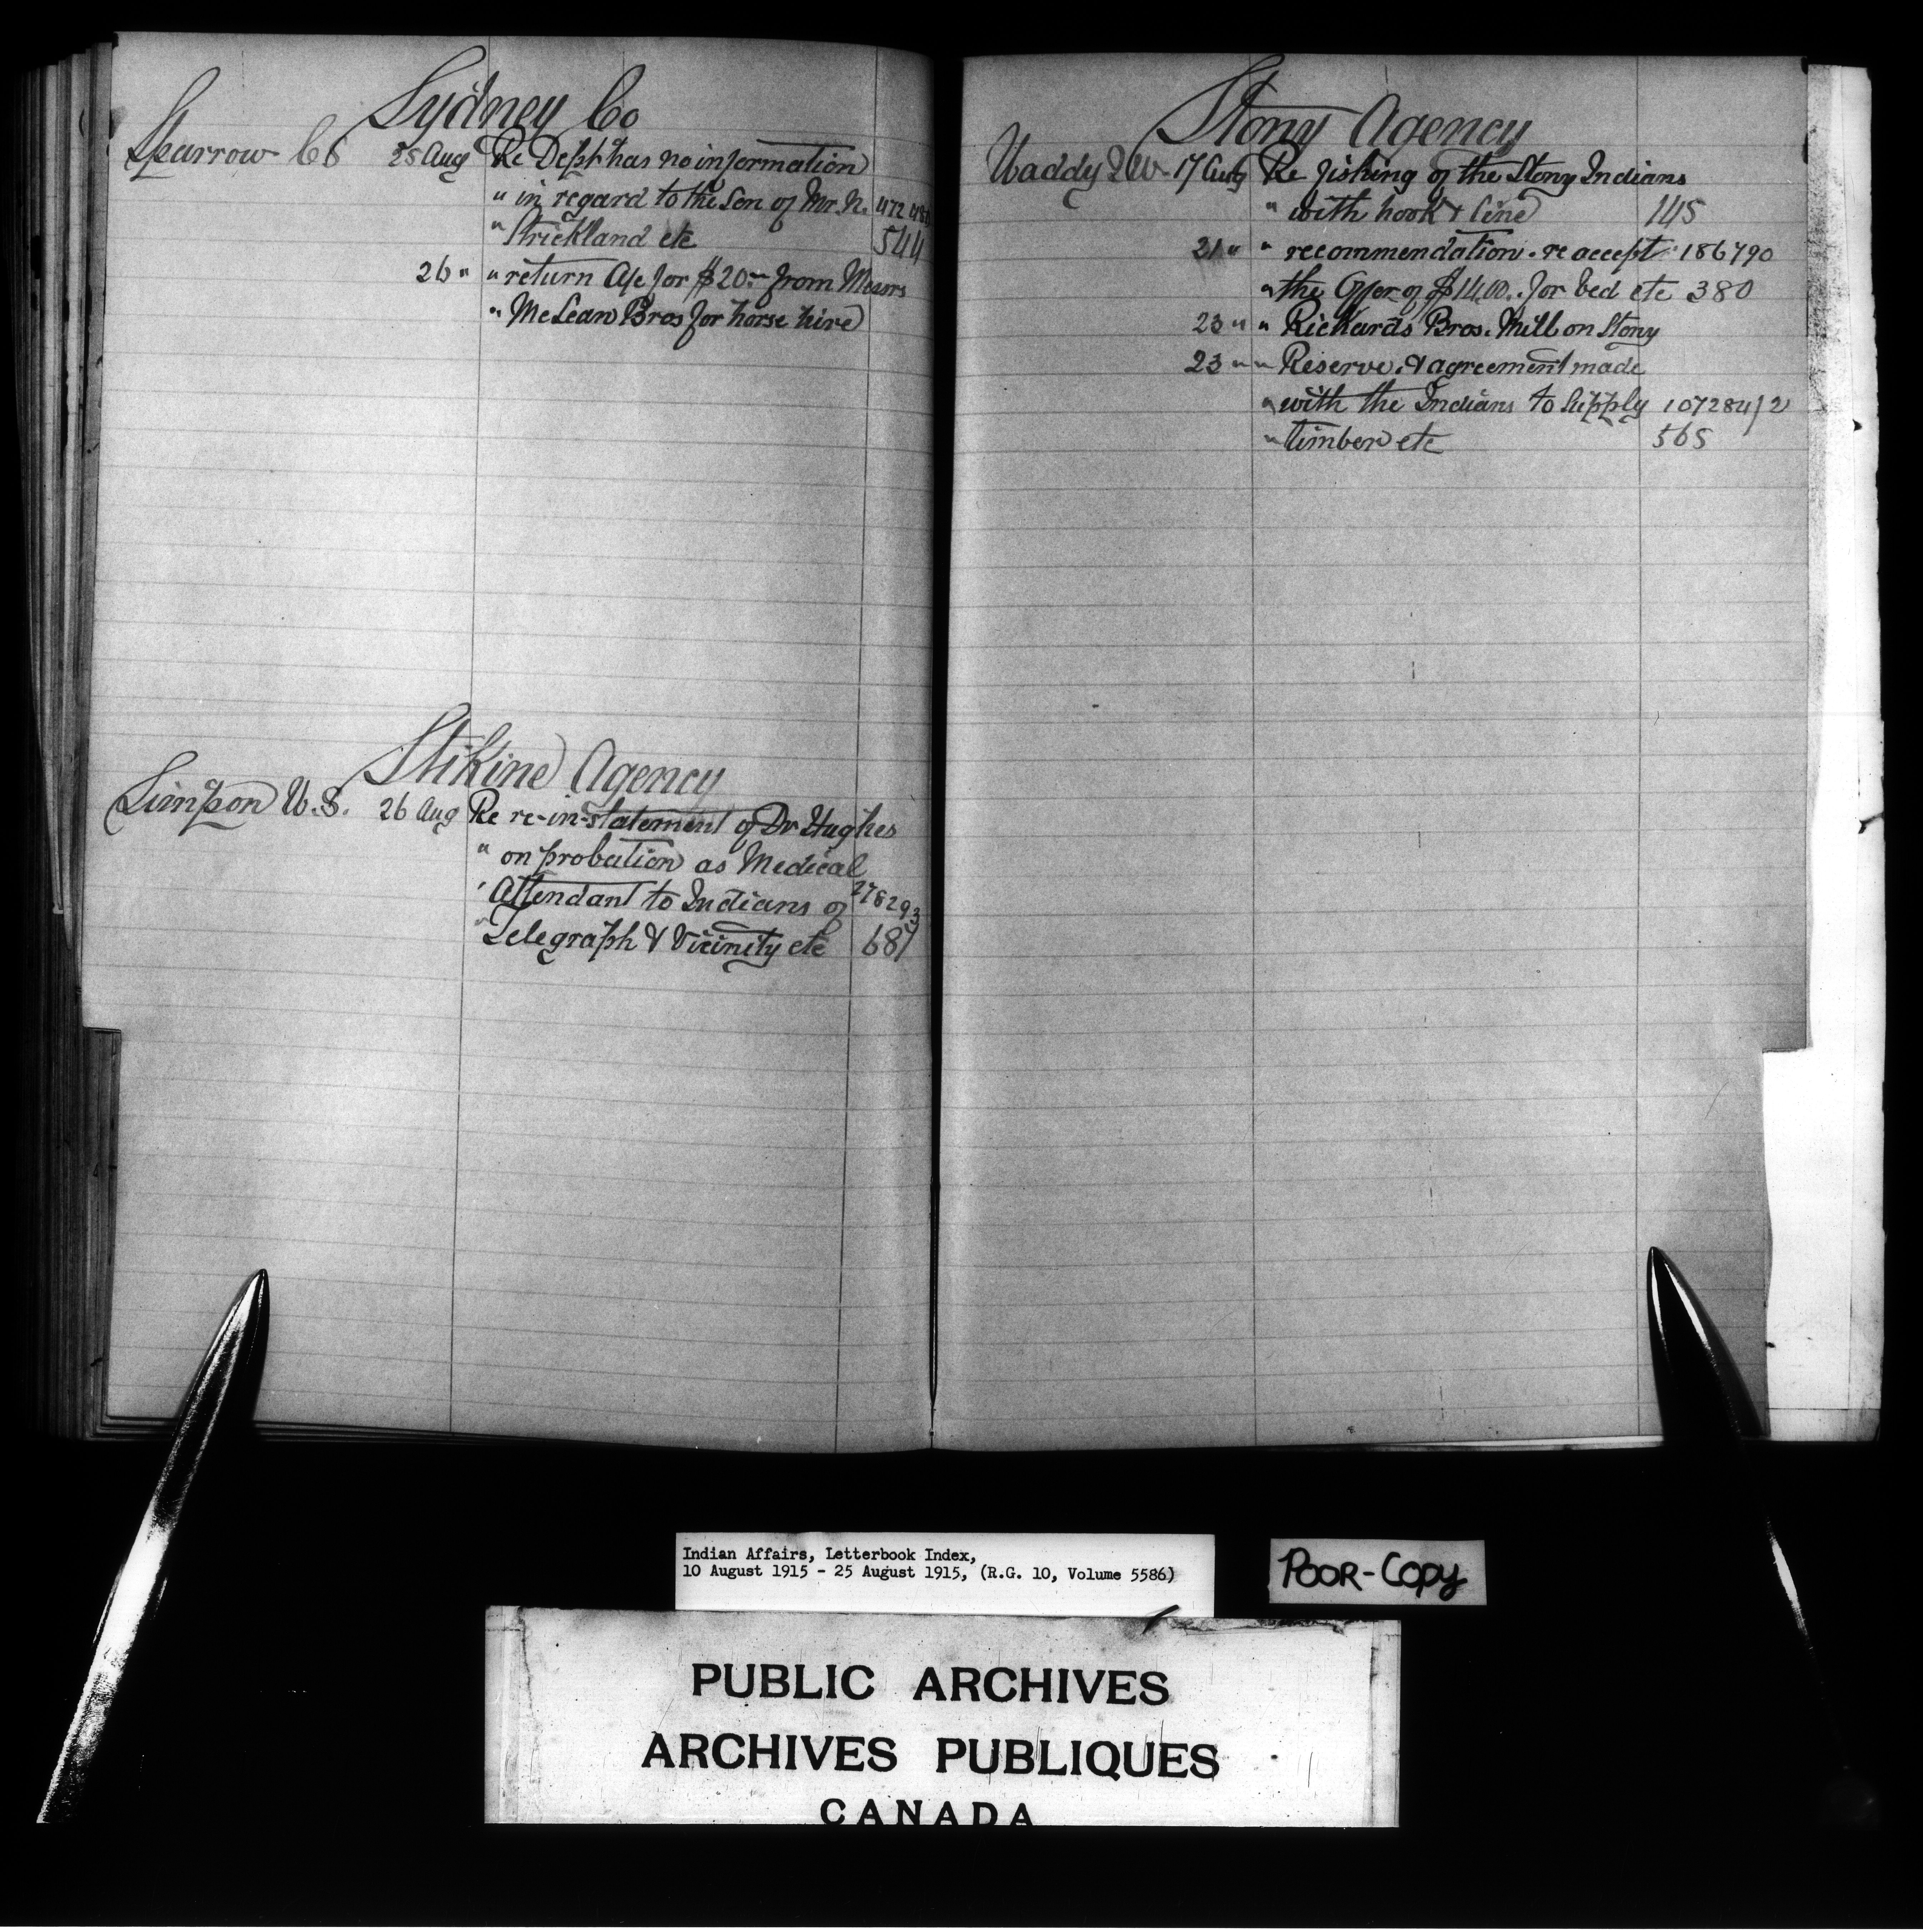 Sydney Co
Sparrow C S 25 Aug Re Dept has no information
" in regard to the Son of Mr. N. 472 480
" Strickland etc 544
26 " " return A/c for $20.00 from Messrs
" McLean Bros for horse hire
Stikine Agency
Simpson W. S. 26 Aug Re re-in-statement of Dr Hughes
" on probation as Medical
" Attendant to Indians of 278293
" Telegraph & Vicinity etc 681
Stony Agency
Waddy J W 17 Aug Re fishing of the Stony Indians
" with hook & line 145
21 " " recommendation. re accept: 186790
" the Offer of $14.00. for bed etc 380
23 " " Richards Bros. Mill on Stony
23 " " Reserve. & agreement made
" with the Indians to Supply 107284/2
" timber etc 565
Indian Affairs, Letterbook Index,
10 August 1915 - 25 August 1915, (R.G. 10, Volume 5586)
POOR-COPY
PUBLIC ARCHIVES
ARCHIVES PUBLIQUES
CANADA